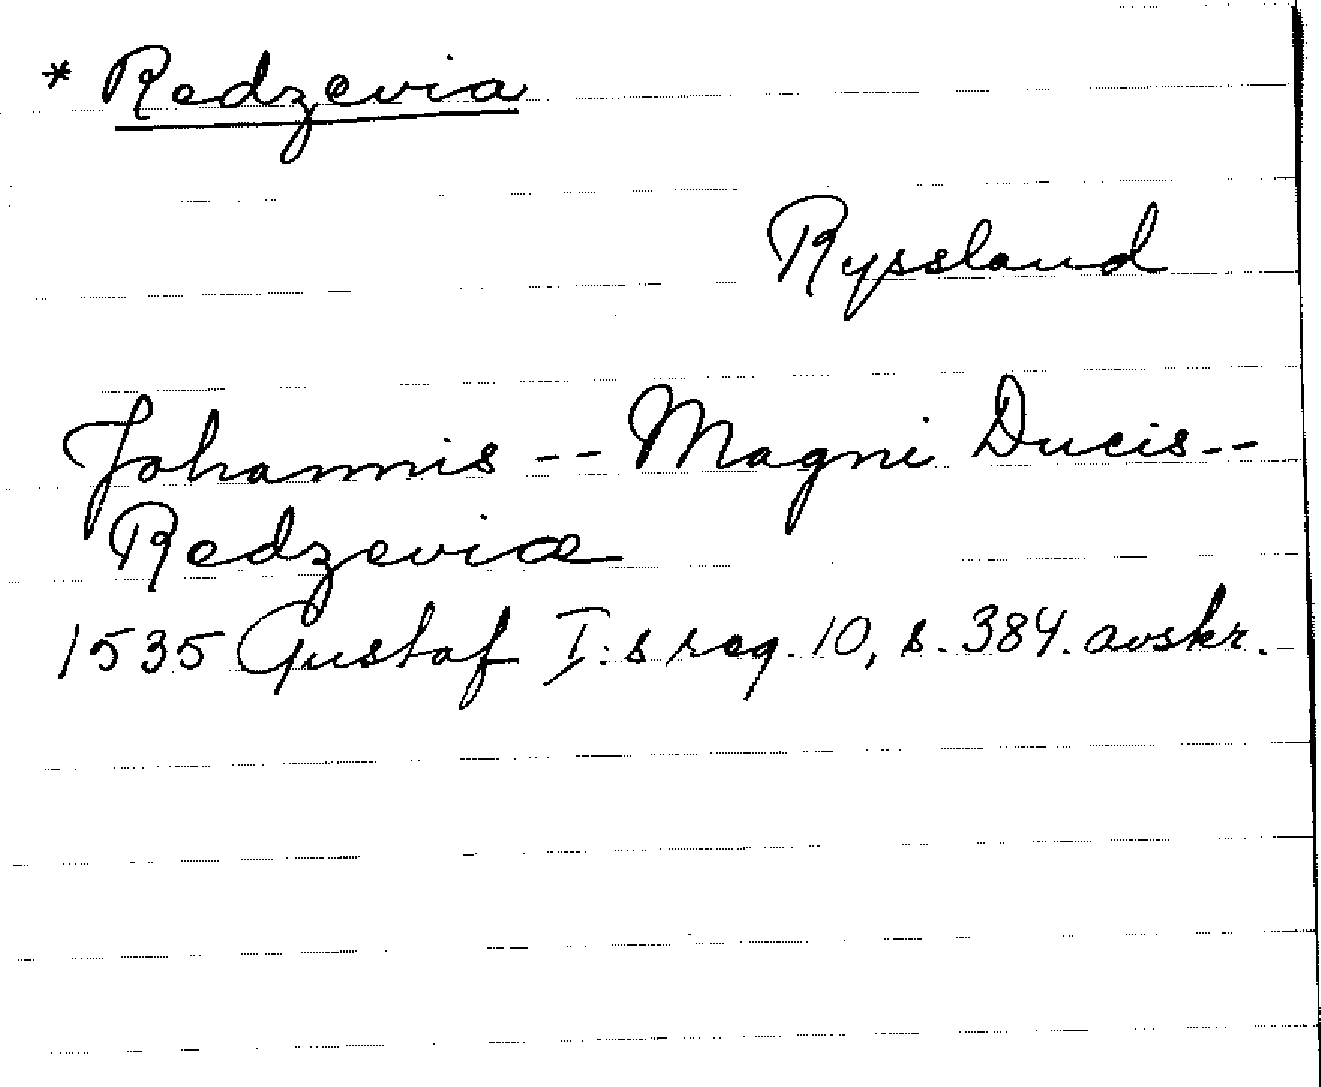 * Redzevia
Ryssland
Johannis -- Magni Ducis --
Redzeviæ
1535 Gustaf I:s reg. 10, s. 384. avskr.